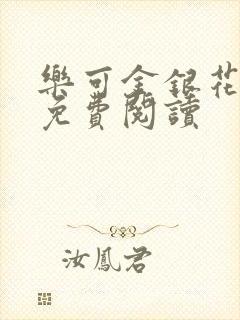 樂可金銀花
免費閱讀
汝鳳君